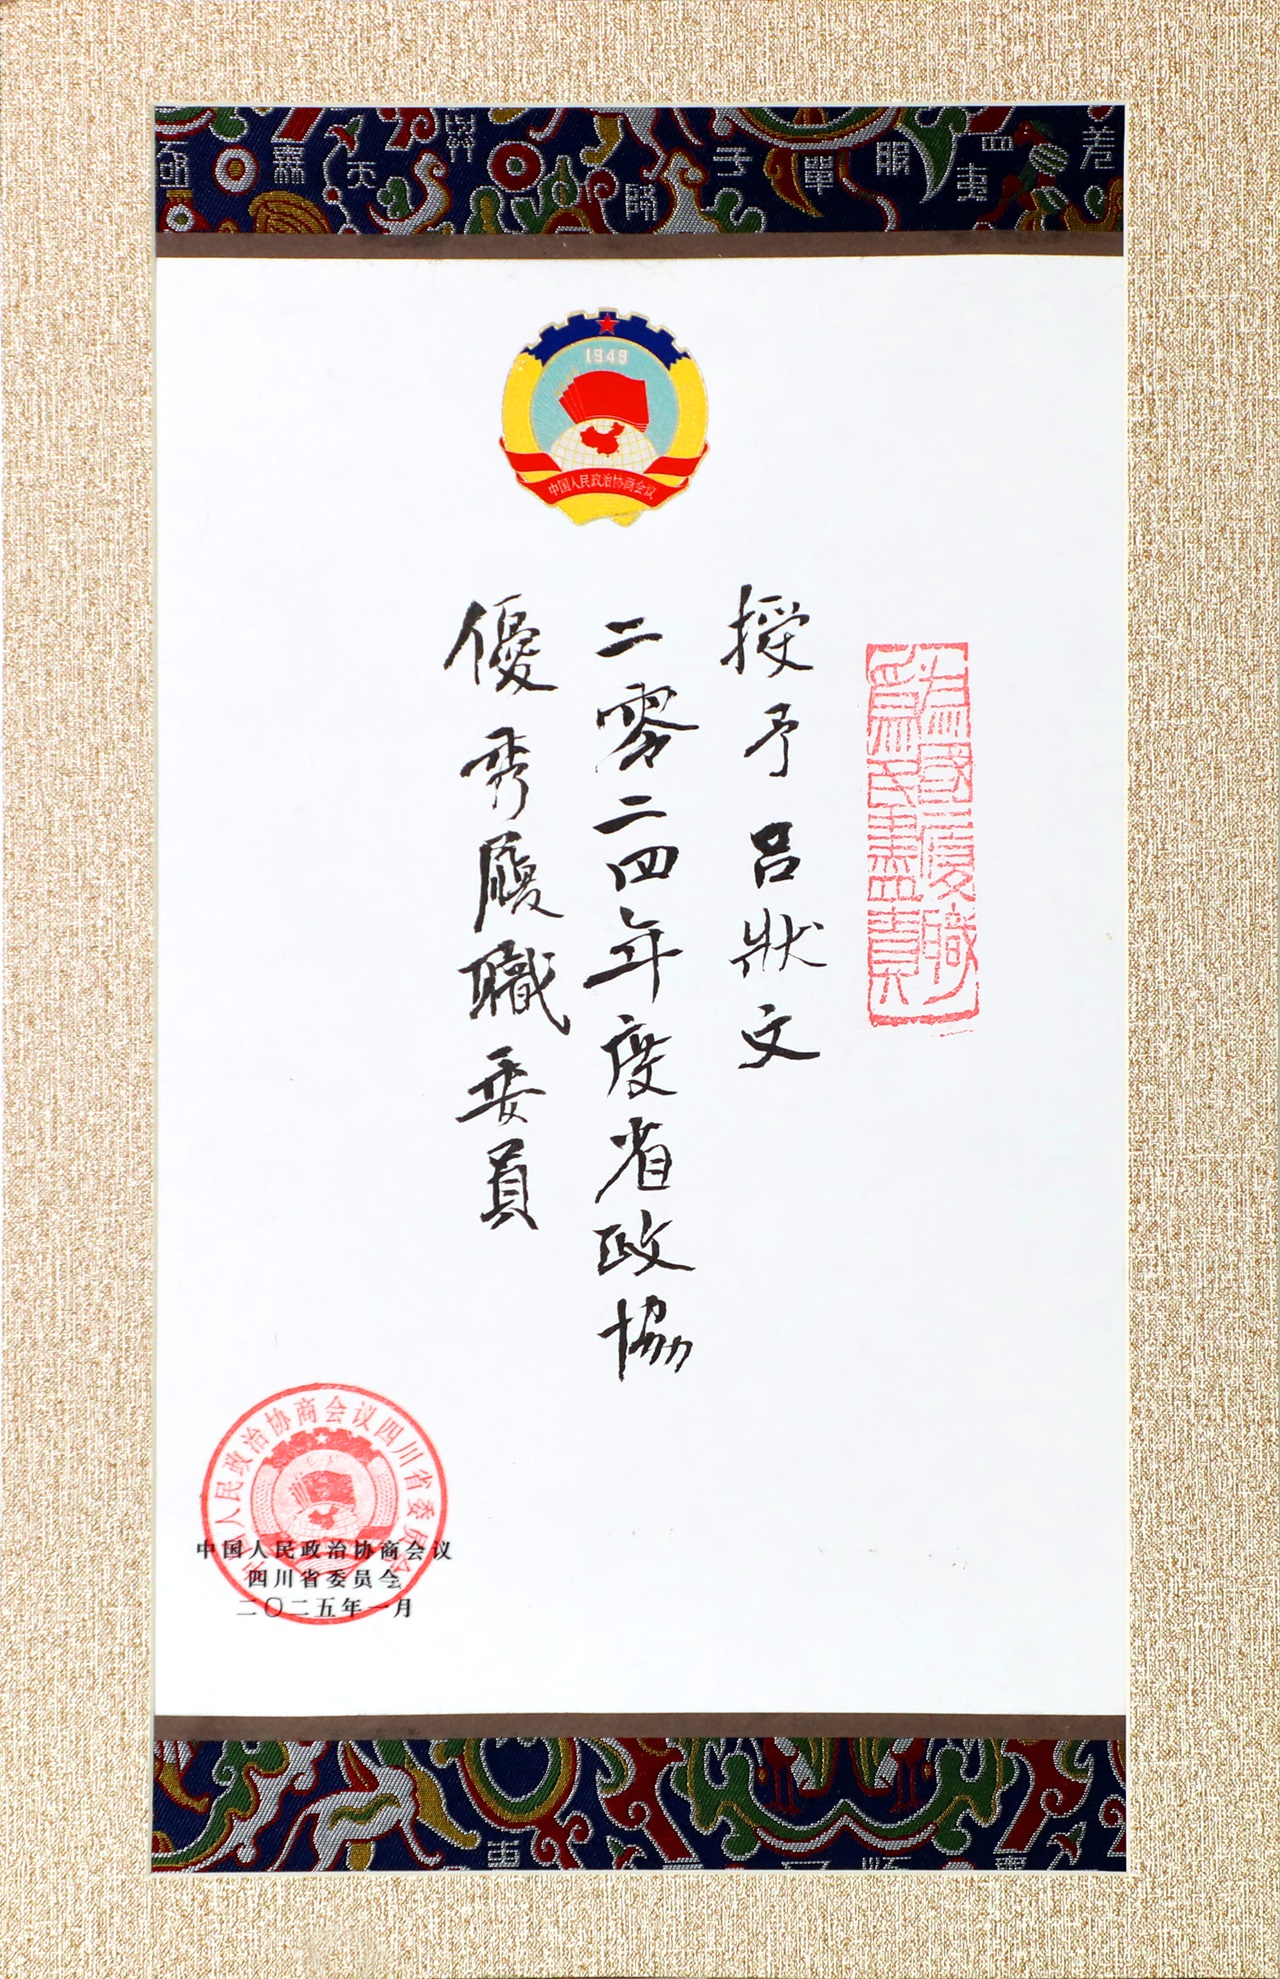 1949
中国人民政治协商会议
為國履職
爲民盡責
授予吕狀文
二零二四年度省政協
優秀履職委員
中国人民政治协商会议四川省委员会
中国人民政治协商会议
四川省委员会
二〇二五年一月